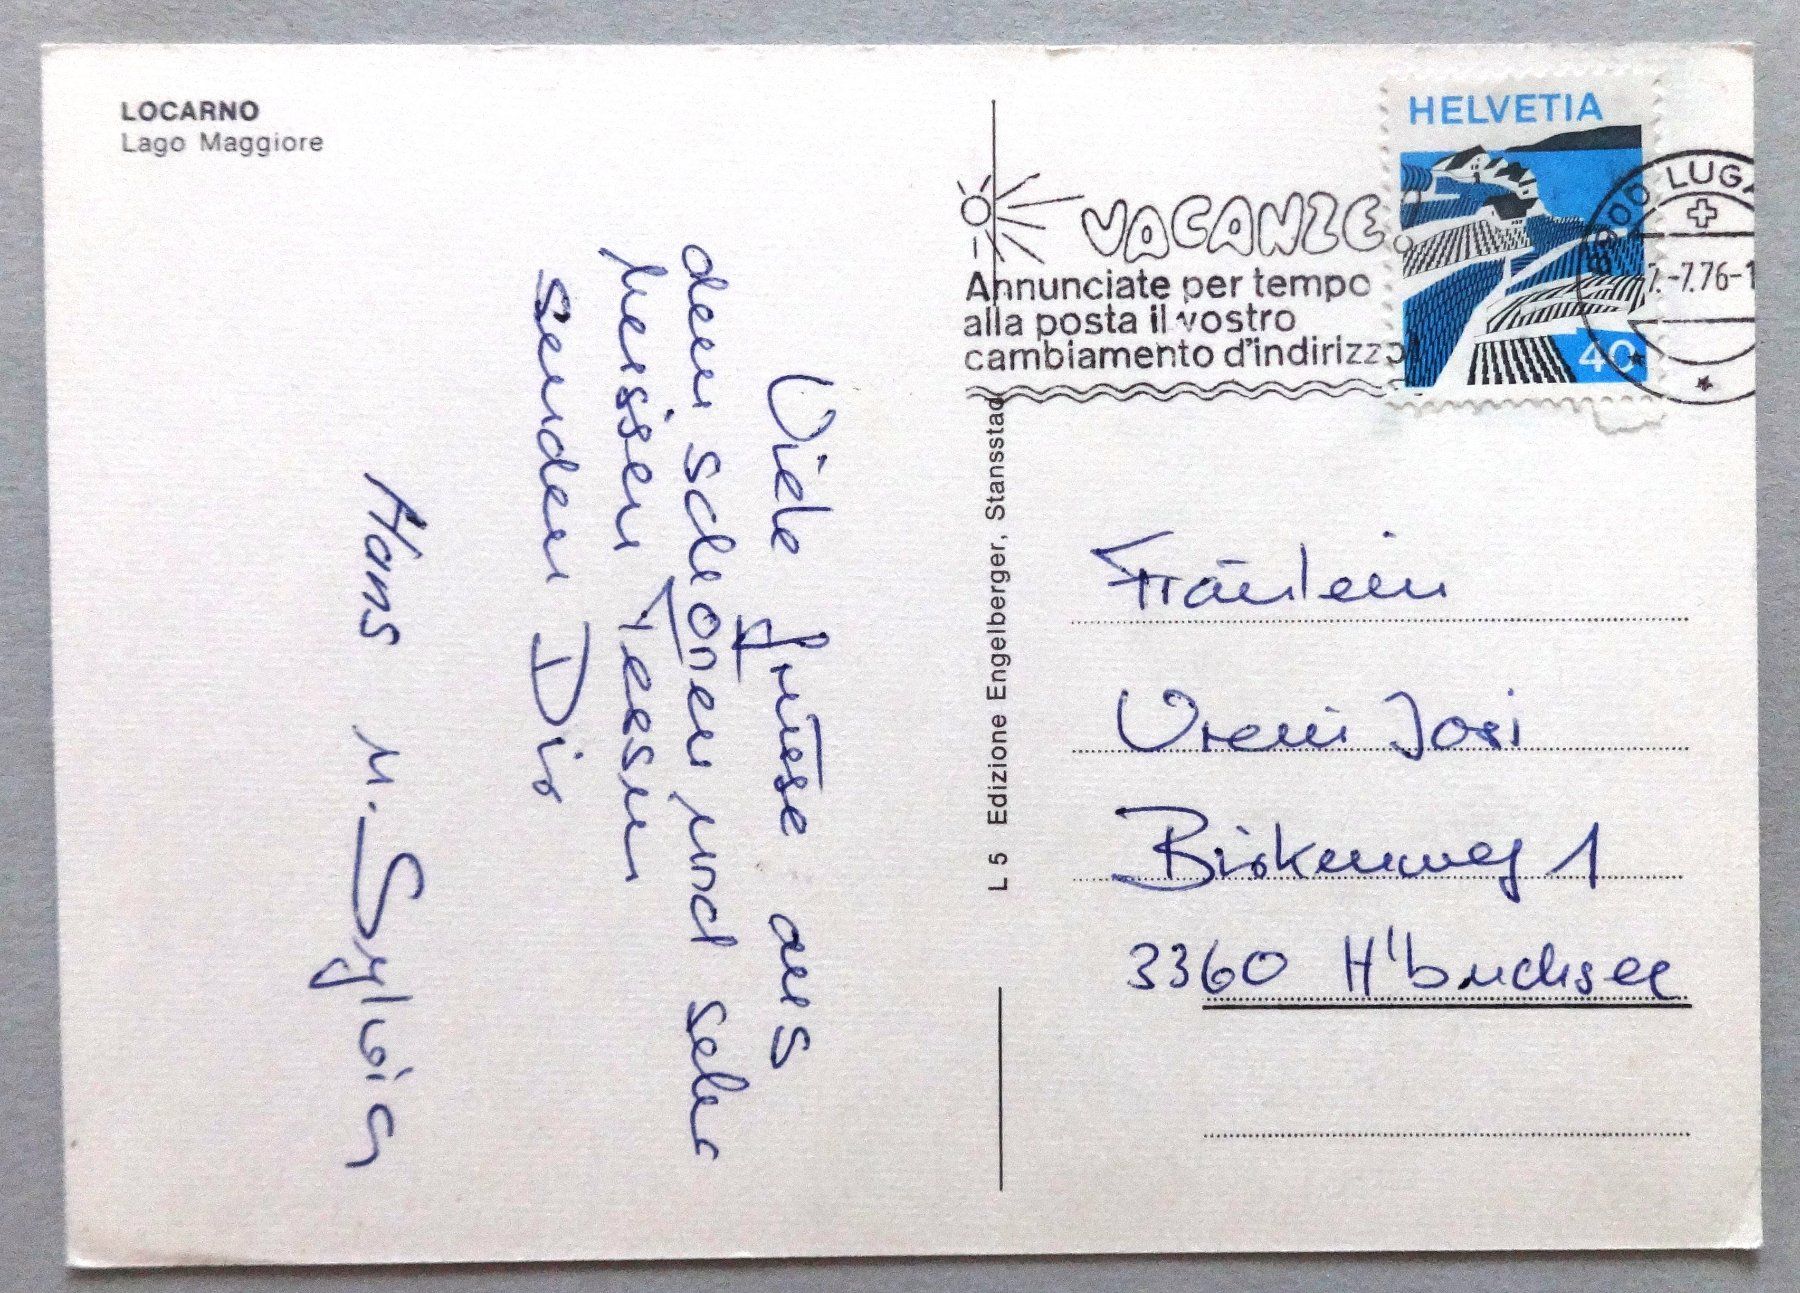 LOCARNO
Lago Maggiore
Viele Grüsse aus
dem schönen und sehr
heissen Tessin
senden Dir
Hans u. Sylvia
L 5 Edizione Engelberger, Stansstad
VACANZE
Annunciate per tempo
alla posta il vostro
cambiamento d'indirizzo!
HELVETIA
40
LUGA
7.-7.76-1
Fräulein
Vreni Josi
Birkenweg 1
3360 H'buchsee